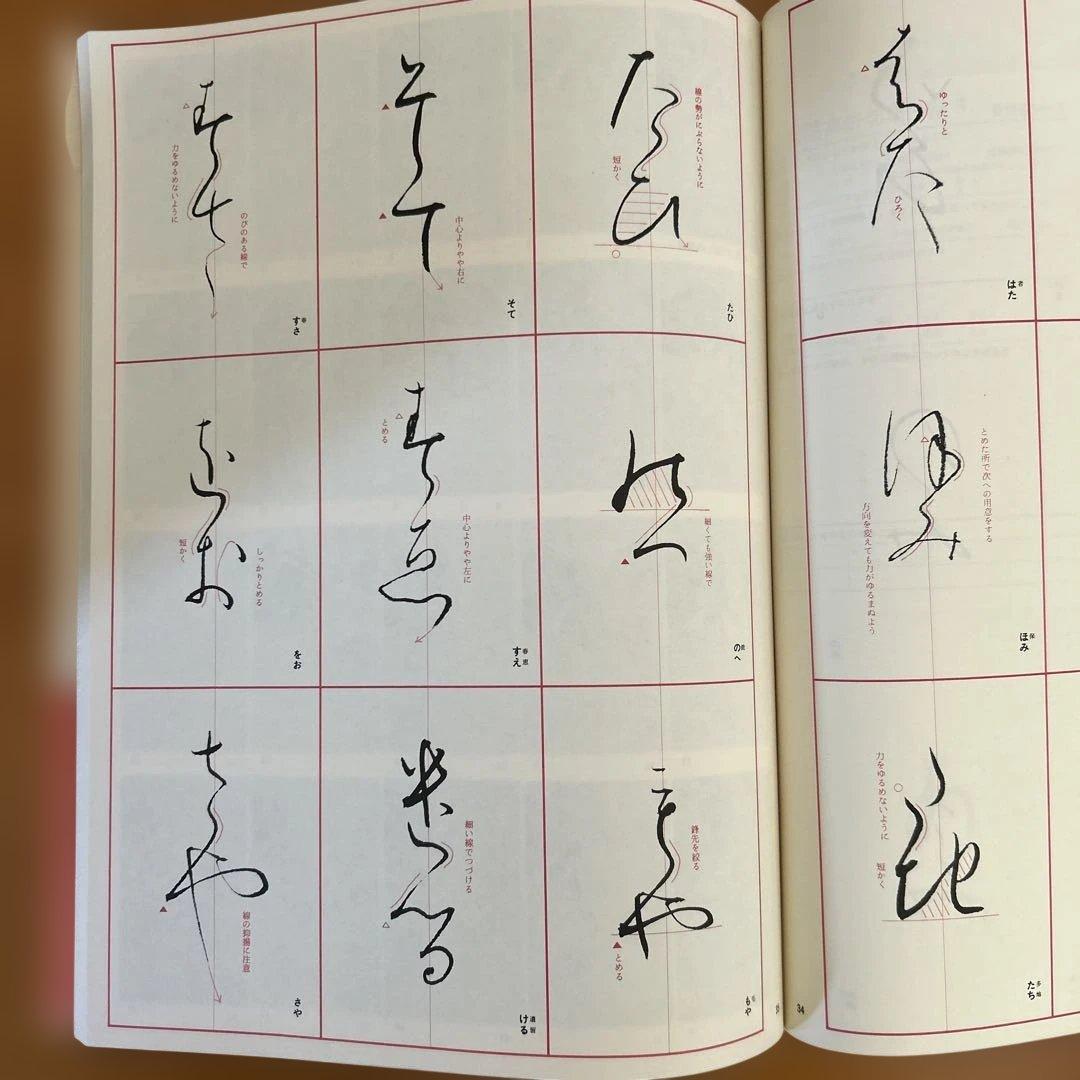 ゆったりと
ひろく
者
はた
とめた所で次への用意をする
方向を変えても力がゆるまぬよう
保
ほみ
力をゆるめないように
短かく
多地
たち
34
線の勢がにぶらないように
短かく
たひ
細くても強い線で
のへ
鋒先を絞る
とめる
もや
そて
中心よりやや右に
そて
とめる
中心よりやや左に
春恵
すえ
細い線でつづける
遣留
ける
力をゆるめないように
のびのある線で
春
すさ
をお
短かく
しっかりとめる
をお
さや
線の抑揚に注意
さや